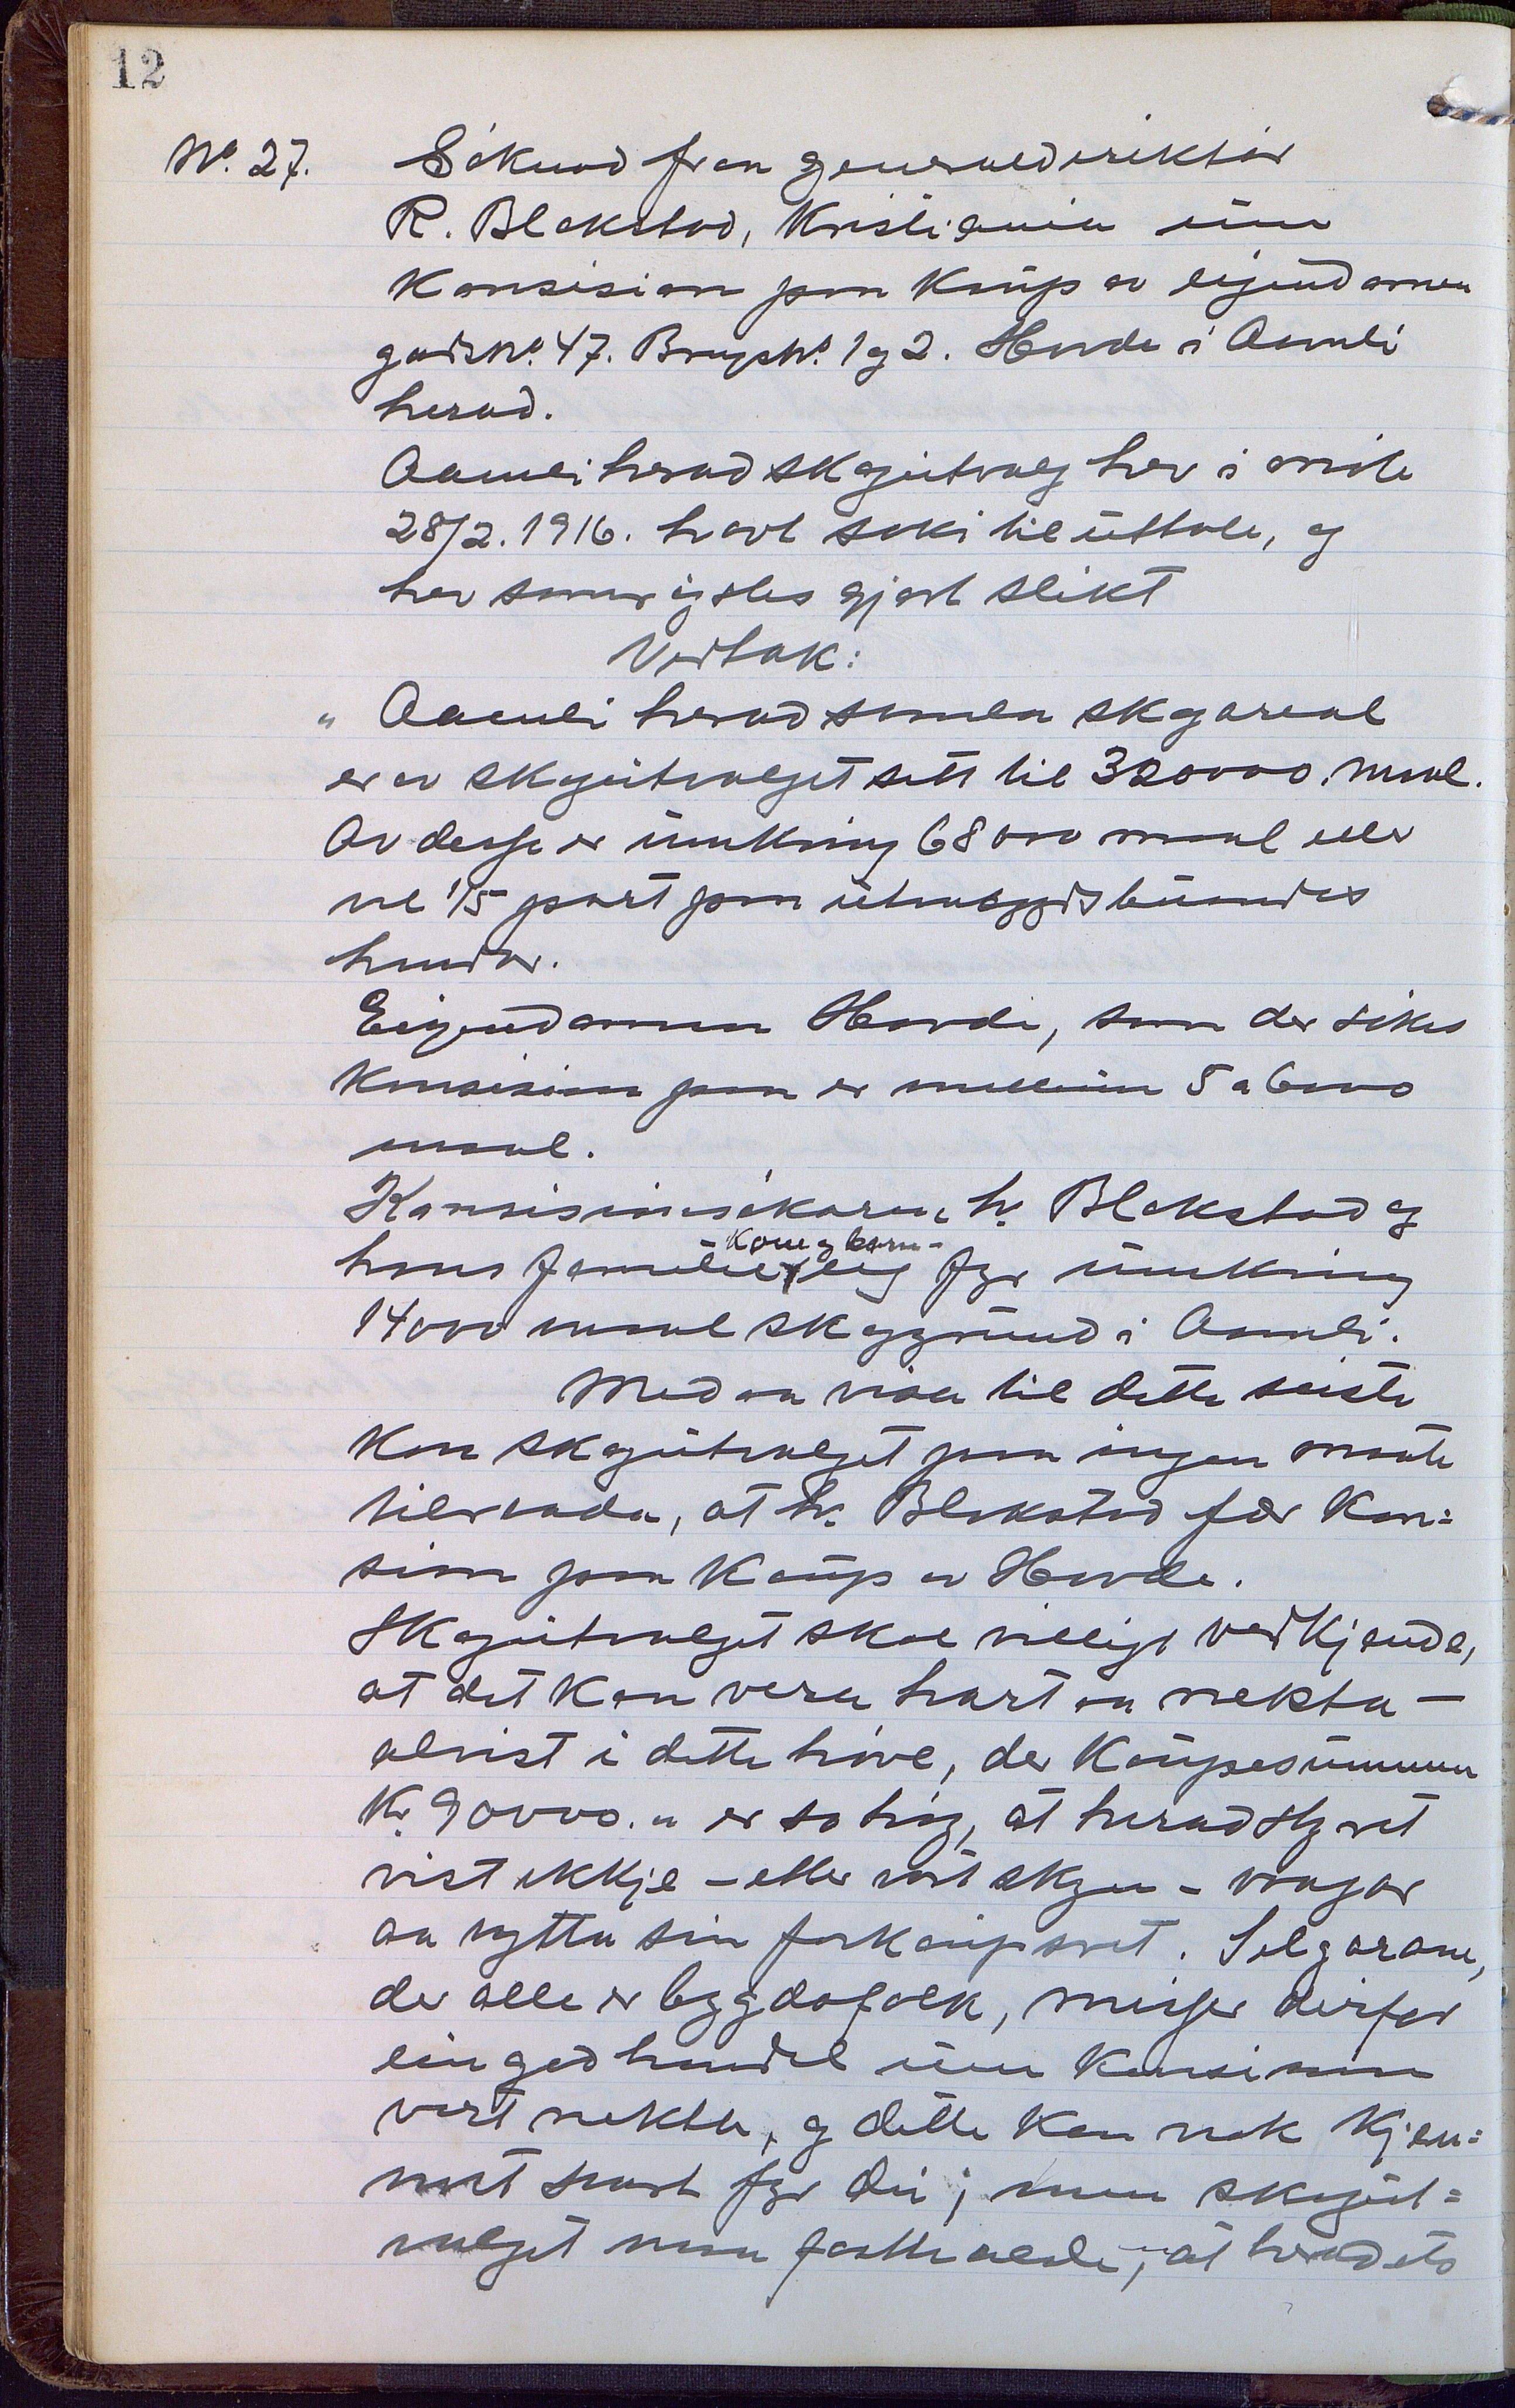 12
No. 27. Søknad fraa generaldirektør
R. Blakstad, Kristiania um
Konsision paa Kaup av eigendomen
gardsno. 47. Bruqsno. 1 og 2. Hovde i Aamli
herad.
Aamli herad skogutvalg hev i møte
28/2. 1916. havt saki til uttale, og
hev samrøystes gjort slikt
Vedtak:
" Aamli herads samla skogareal
er av skogutvalget sett til 320000. maal.
Av desse er umkring 68000 maal eller
vel 1/5 part paa utanbygdsbuandes
hender.
Eigendomen Hovde, som der søkes
Konsision paa er millum 5 a 6000
maal.
Konsisionsøkaren, hr. Blakstad og
hans familie - Kone og born - eig fyr umkring
14000 maal skoggrund i Aamli.
Med aa visa til dette siste
Kan skogutvalget paa ingen maate
tilraada, at hr. Blakstad fær Kon=
sion paa Kaup av Hovde.
Skogutvalget skal villigt vedkjenda,
at det Kan vera hart aa nekta –
alvist i dette høve, der Kaupesummen
Kr. 90000.- er so høg, at heradstyret
vist ikkje – etter vort skyn – vaagar
aa nytta sin forkaupsret. Selgarane,
der alle er bygdafolk, misser derfor
ein god handel um Konsision
vert nekta, og dette Kan nok Kjen=
nast hart fyr dei; men skogut=
valget maa fasthalda, at heradets